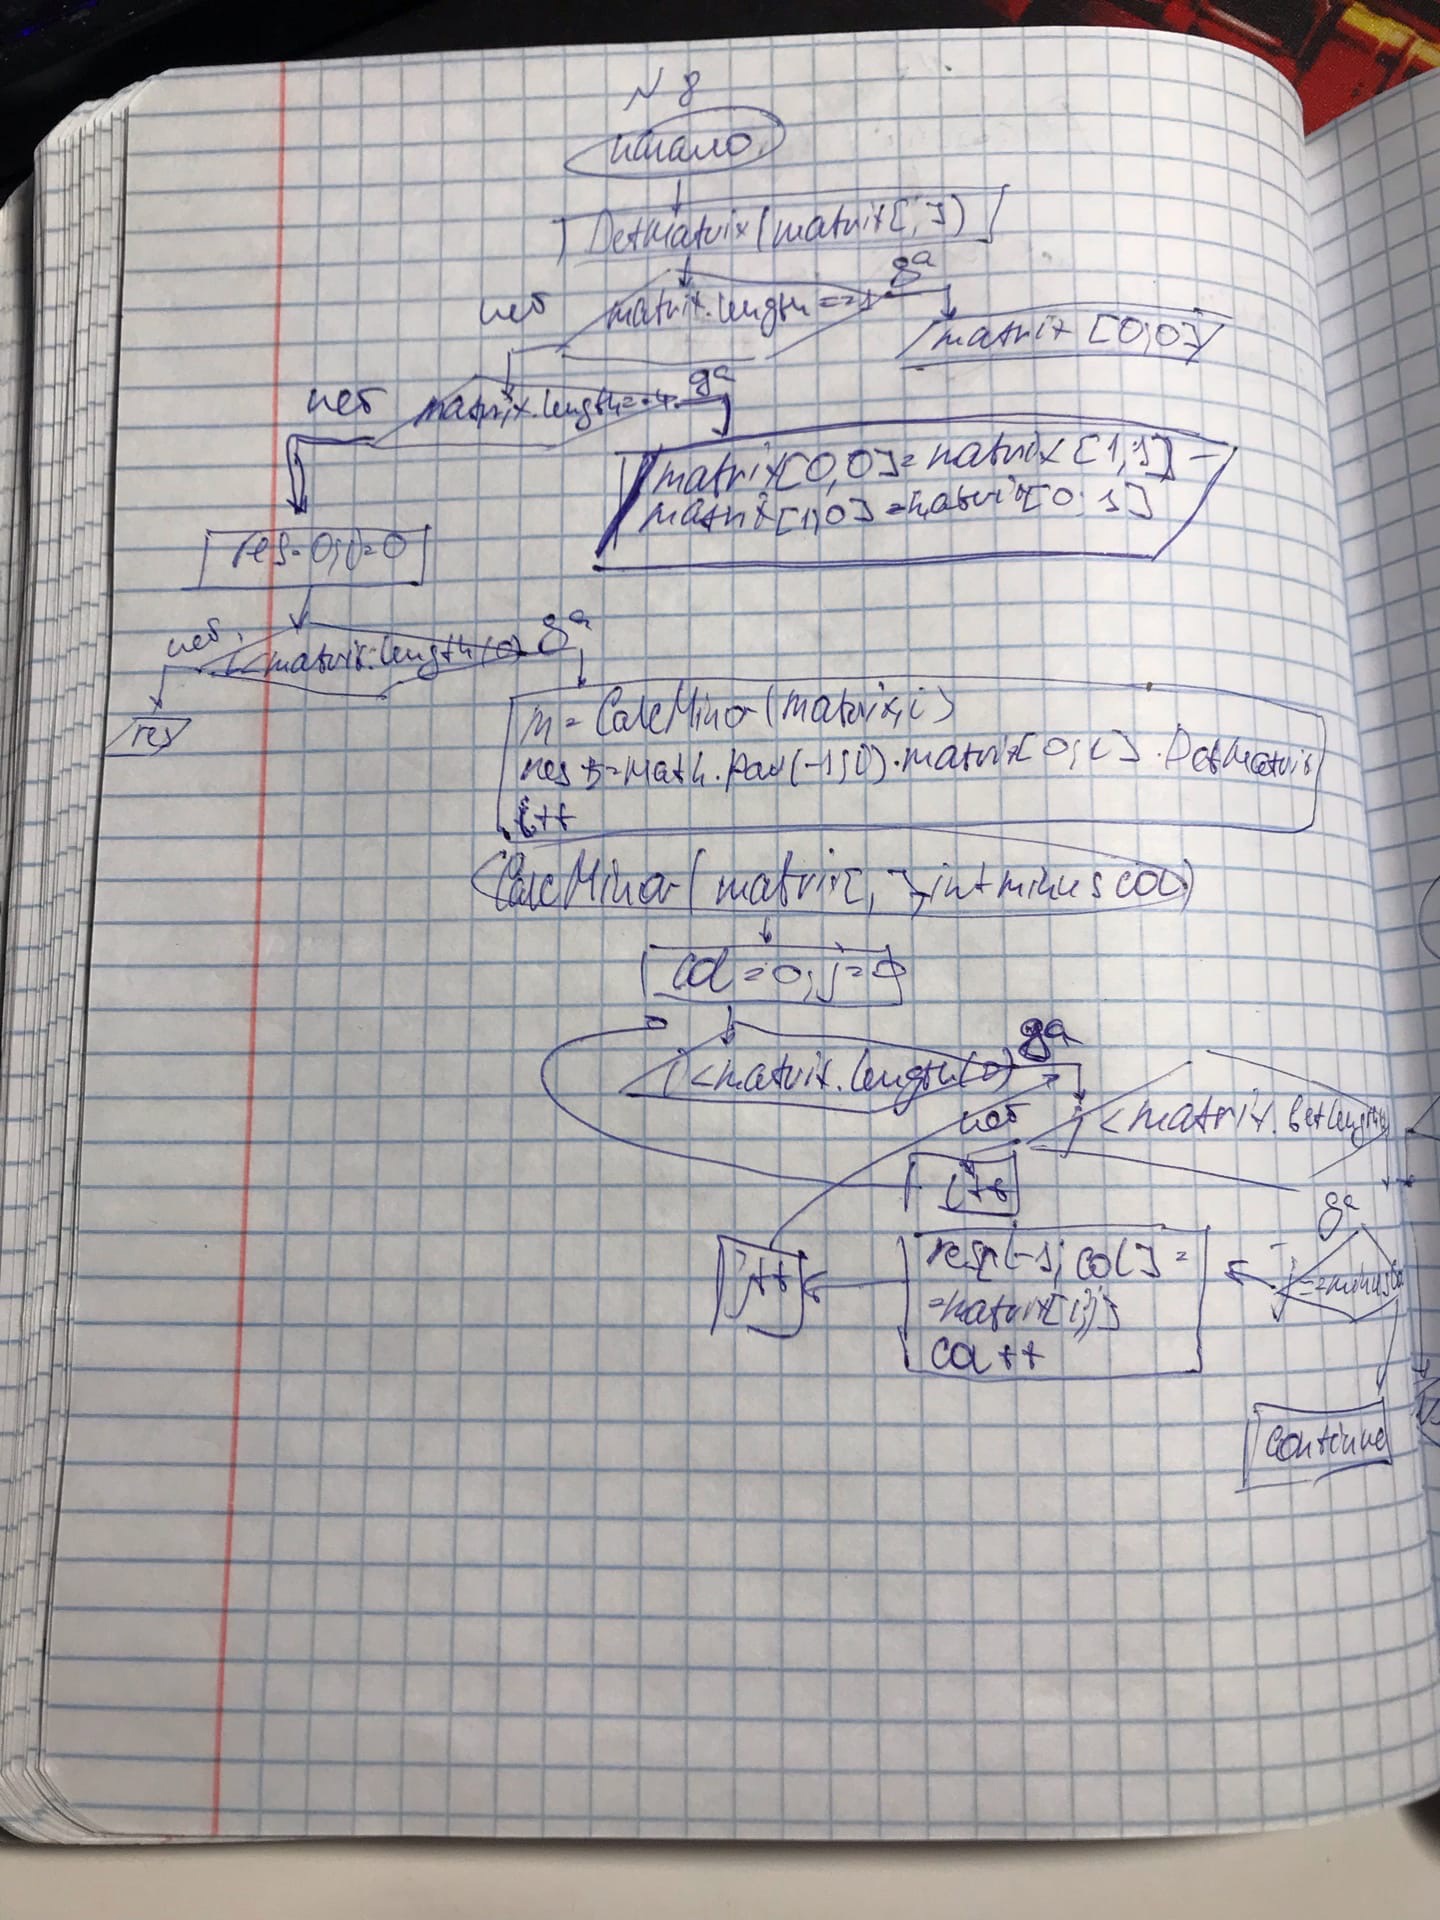 N 8
начало
DetMatrix(matrix[,])
да
нет
matrix.length==1
matrix [0,0]
да
нет
matrix.length==4
matrix[0,0]=matrix[1,1]-
matrix[1,0]=matrix[0,1]
res=0; i=0
да
нет
i<matrix.length(0)
res
m= CalcMinor(matrix,i)
res +=Math.Pow(-1,i)·matrix[0,i]·DetMatrix
i++
CalcMinor(matrix[,],int minuscol)
col=0; j=0
да
i<matrix.length(0)
нет
j<matrix.Getlength
i++
да
res[i-1, col]=
=matrix[i,j]
col++
j++
j==minuscol
continue